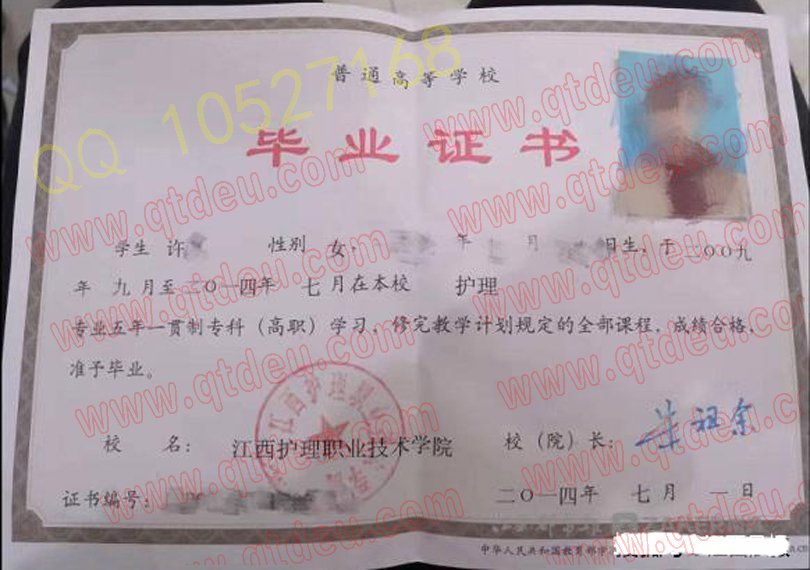 普通高等学校
QQ 10527168
毕业证书
www.qtdeu.com
www.qtdeu.com
www.qtdeu.com
学生 许 性别 女, 年 月 日生,于二〇〇九
年 九月至二〇一四年 七月在本校 护理
专业五年一贯制专科(高职)学习,修完教学计划规定的全部课程,成绩合格,
准予毕业。
www.qtdeu.com
www.qtdeu.com
江西护理职
校 名: 江西护理职业技术学院 校(院)长:
证书编号: 二〇一四年 七月 一日
www.qtdeu.com
www.qtdeu.com
中华人民共和国教育部学